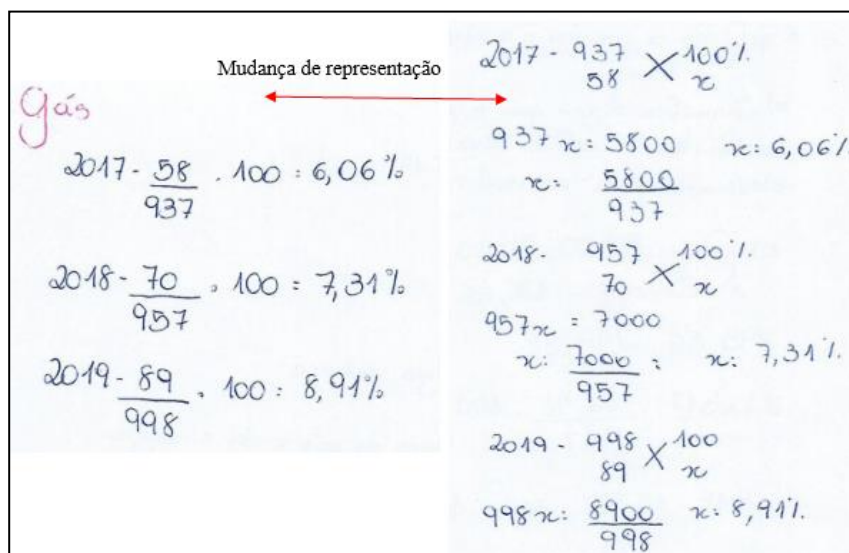 Mudança de representação
Gás
2017 - 58/937 . 100 = 6,06%
2018 - 70/957 . 100 = 7,31%
2019 - 89/998 . 100 = 8,91%
2017 - 937 100%
58 x
937x = 5800 x = 6,06%
x = 5800/937
2018 - 957 100%
70 x
957x = 7000
x = 7000/957 = x = 7,31%
2019 - 998 100
89 x
998x = 8900/998 x = 8,91%